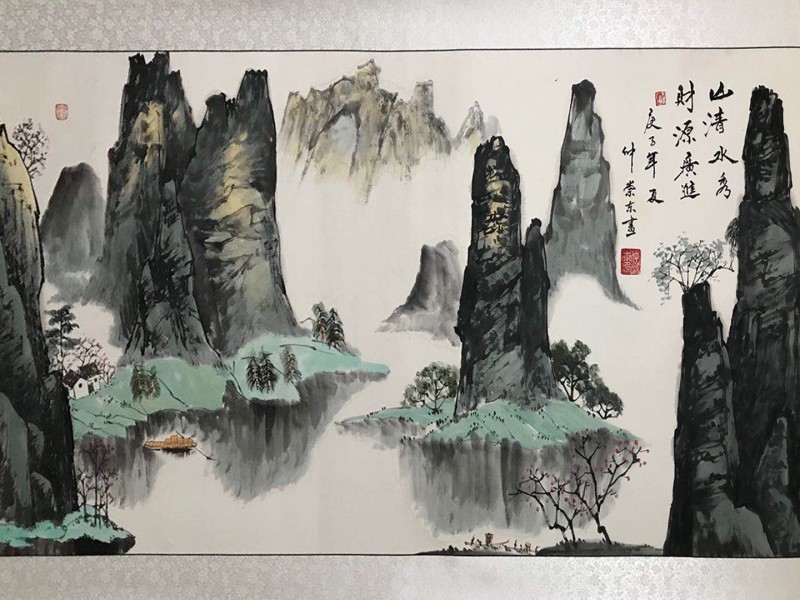 山清水秀
財源廣進
庚子年夏
仲崇东画